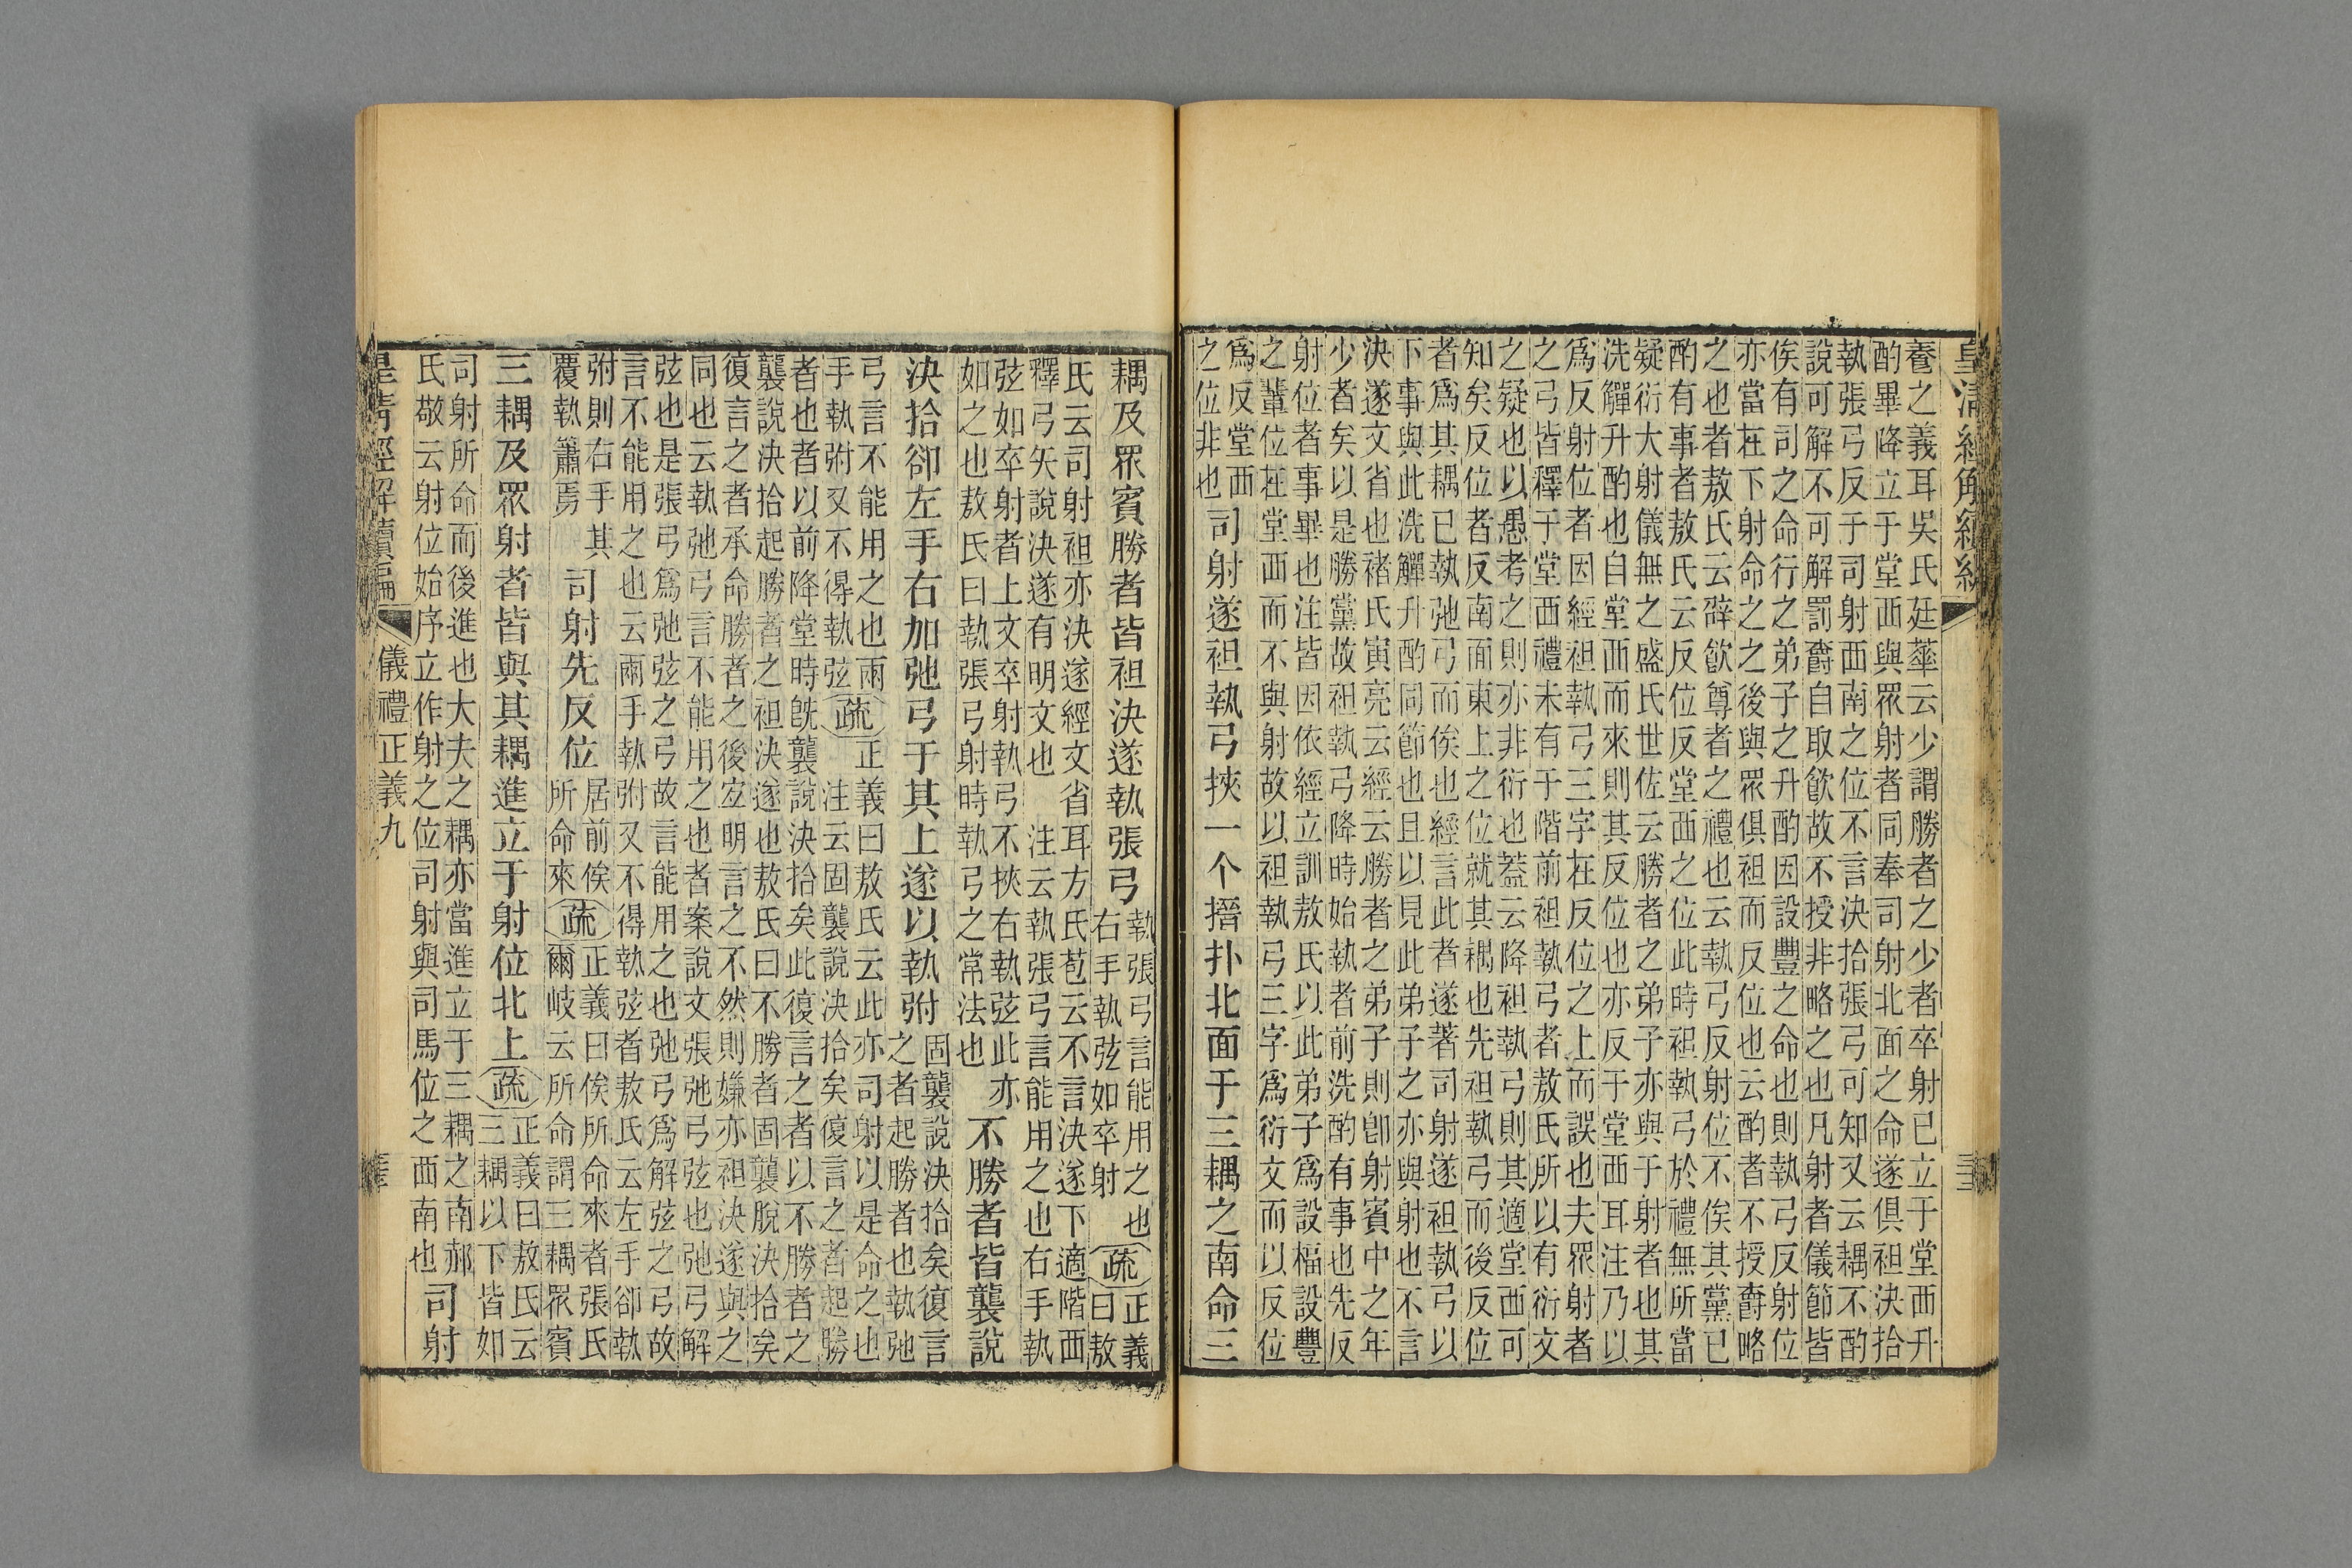 皇清經解續編
養之義耳吳氏廷華云少謂勝者之少者卒射已立于堂西升
酌畢降立于堂西與眾射者同奉司射北面之命遂俱袒決拾
執張弓反于司射西南之位不言決拾張弓可知又云耦不酌
說可解不可解罰爵自取飲故不授非略之也凡射者儀節皆
俟有司之命行之弟子之升酌因設豐之命也則執弓反射位
亦當在下射命之之後與眾俱袒而反位也云酌者不授爵略
之也者敖氏云辟飲尊者之禮也云執弓反射位不俟其黨已
酌有事者敖氏云反位反堂西之位此時袒執弓於禮無所當
疑衍大射儀無之盛氏世佐云勝者之弟子亦與于射者也其
洗觶升酌也自堂西而來則其反位也亦反于堂西耳注乃以
爲反射位者因經袒執弓三字在反位之上而誤也夫眾射者
之弓皆釋于堂西禮未有于階前袒執弓者敖氏所以有衍文
之疑也以愚考之則亦非衍也蓋云降袒執弓則其適堂西可
知矣反位者反南面東上之位就其耦也先袒執弓而後反位
者爲其耦已執弛弓而俟也經言此者遂著司射遂袒執弓以
下事與此洗觶升酌同節也且以見此弟子之亦與射也不言
決遂文省也褚氏寅亮云經云勝者之弟子則卽射賓中之年
少者矣以是勝黨故袒執弓降時始執者前洗酌有事也先反
射位者事畢也注皆因依經立訓敖氏以此弟子爲設楅設豐
之輩位在堂西而不與射故以袒執弓三字爲衍文而以反位
爲反堂西
之位非也
司射遂袒執弓挾一个搢扑北面于三耦之南命三
耦及眾賓勝者皆袒決遂執張弓
執張弓言能用之也
右手執弦如卒射
疏
正義
曰敖
氏云司射袒亦決遂經文省耳方氏苞云不言決遂下適階西
釋弓矢說決遂有明文也 注云執張弓言能用之也右手執
弦如卒射者上文卒射執弓不挾右執弦此亦
如之也敖氏曰執張弓射時執弓之常法也
不勝者皆襲說
決拾卻左手右加弛弓于其上遂以執弣
固襲說決拾矣復言
之者起勝者也執弛
弓言不能用之也兩
手執弣又不得執弦
疏
正義曰敖氏云此亦司射以是命之也
注云固襲說決拾矣復言之者起勝
者也者以前降堂時旣襲說決拾矣此復言之者以不勝者之
襲說決拾起勝者之袒決遂也敖氏曰不勝者固襲脫決拾矣
復言之者承命勝者之後宜明言之不然則嫌亦袒決遂與之
同也云執弛弓言不能用之也者案說文張弛弓弦也弛弓解
弦也是張弓爲弛弦之弓故言能用之也弛弓爲解弦之弓故
言不能用之也云兩手執弣又不得執弦者敖氏云左手卻執
弣則右手其
覆執簫焉
司射先反位
居前俟
所命來
疏
正義曰俟所命來者張氏
爾岐云所命謂三耦眾賓
三耦及眾射者皆與其耦進立于射位北上
疏
正義曰敖氏云
三耦以下皆如
司射所命而後進也大夫之耦亦當進立于三耦之南郝
氏敬云射位始序立作射之位司射與司馬位之西南也
司射
皇清經解續編 儀禮正義九